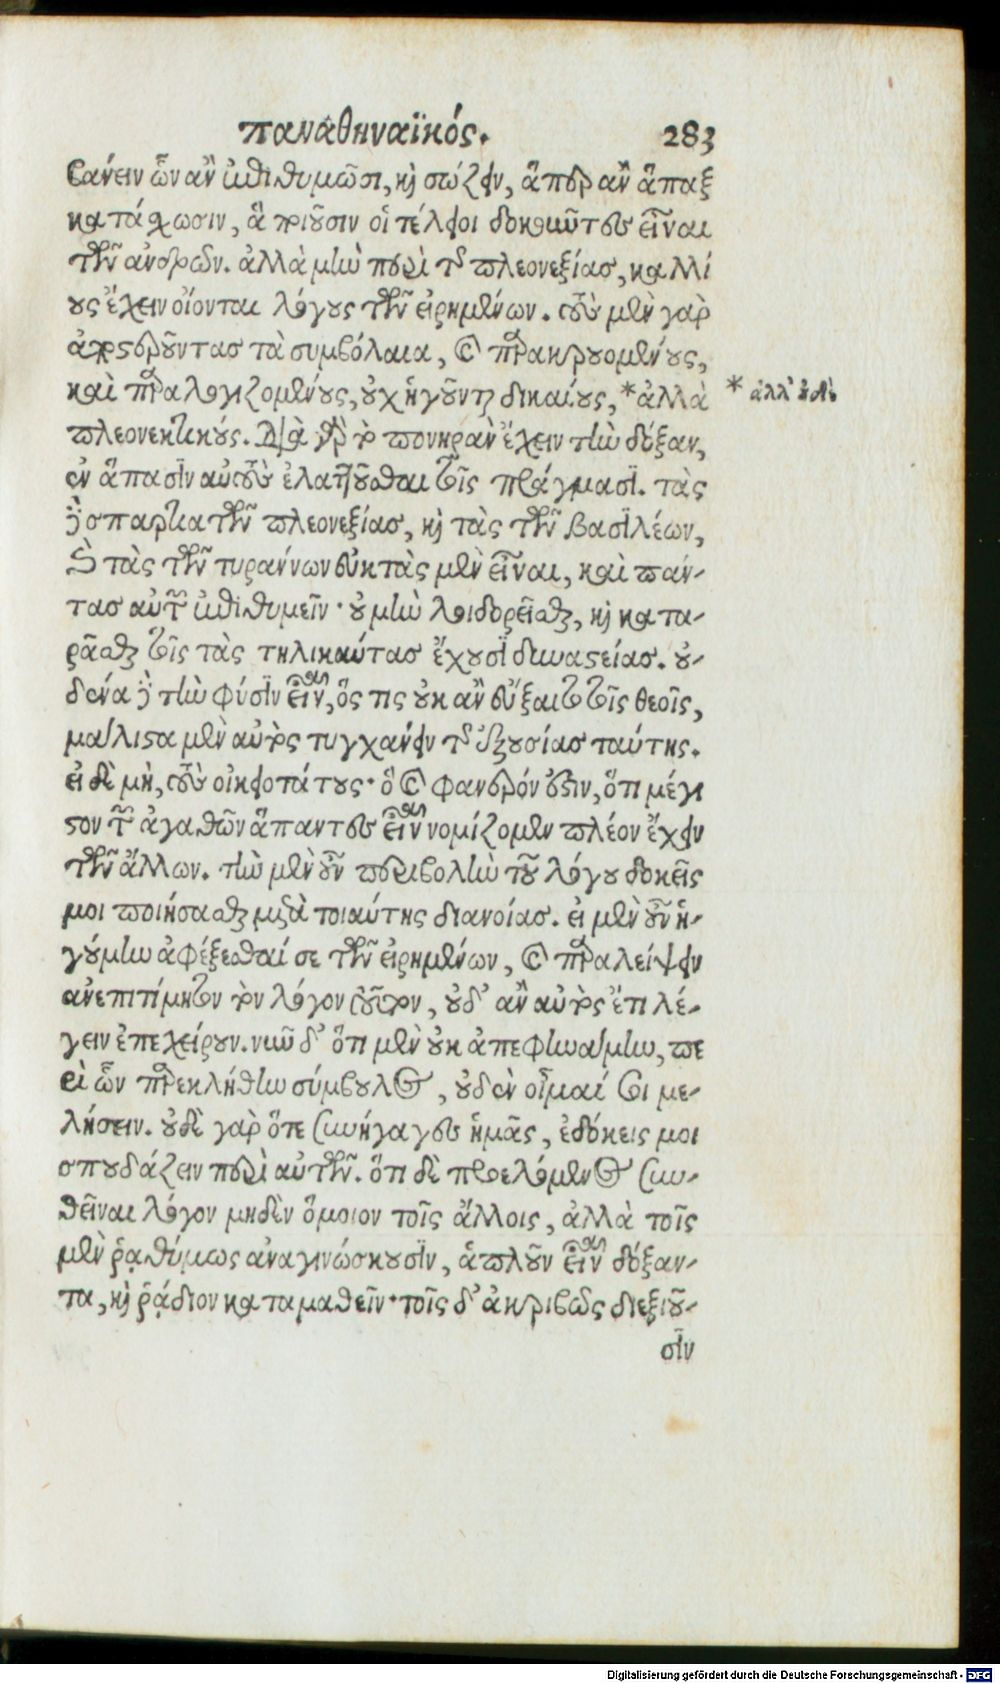 παναθηναϊκός. 283
βάνειν ὧν ἂν ἐπιθυμῶσι, καὶ σώζειν, ἅπερ ἂν ἅπαξ
κατάχωσιν, ἃ ποιοῦσιν οἱ τέλειοι δοκοῦντες εἶναι
τῶν ἀνδρῶν. ἀλλὰ μὴν περὶ τῆς πλεονεξίας, καλλί
ους ἔχειν οἴονται λόγους τῶν εἰρημένων. τοὺς μὲν γὰρ
ἀποστεροῦντας τὰ συμβόλαια, καὶ παρακρουομένους,
καὶ παραλογιζομένους, οὐχ ἡγοῦνται δικαίους, *ἀλλὰ
* ἀλλ' οὐδὲ
πλεονεκτικούς. διὰ γὰρ τὸ πονηρὰν ἔχειν τὴν δόξαν,
ἐν ἅπασιν αὐτοὺς ἐλαττοῦσθαι τοῖς πράγμασι. τὰς
δὲ σπαρτιατῶν πλεονεξίας, καὶ τὰς τῶν βασιλέων,
καὶ τὰς τῶν τυράννων εὐκτὰς μὲν εἶναι, καὶ πάν-
τας αὐτῶν ἐπιθυμεῖν· οὐ μὴν λοιδορεῖσθαι, καὶ κατα-
ρᾶσθαι τοῖς τὰς τηλικαύτας ἔχουσι δυναστείας. οὐ-
δένα δὲ τὴν φύσιν εἶναι, ὅς τις οὐκ ἂν εὔξαιτο τοῖς θεοῖς,
μάλιστα μὲν αὐτὸς τυγχάνειν τῆς ἐξουσίας ταύτης.
εἰ δὲ μὴ, τοὺς οἰκειοτάτους· ὃ καὶ φανερόν ἐστιν, ὅτι μέγι
στον τῶν ἀγαθῶν ἅπαντες εἶναι νομίζομεν πλέον ἔχειν
τῶν ἄλλων. τὴν μὲν οὖν περιβολὴν τοῦ λόγου δοκεῖς
μοι ποιήσασθαι μετὰ τοιαύτης διανοίας. εἰ μὲν οὖν ἡ-
γούμην ἀφέξεσθαί σε τῶν εἰρημένων, καὶ παραλείψειν
ἀνεπιτίμητον τὸν λόγον τοῦτον, οὐδ' ἂν αὐτὸς ἔτι λέ-
γειν ἐπεχείρουν. νῦν δ' ὅτι μὲν οὐκ ἀπεφηνάμην, πε
ρὶ ὧν παρεκλήθην σύμβουλος, οὐδὲν οἶμαί σοι με-
λήσειν. οὐδὲ γὰρ ὅτε συνήγαγες ἡμᾶς, ἐδόκεις μοι
σπουδάζειν περὶ αὐτῶν. ὅτι δὲ προελόμενος συν-
θεῖναι λόγον μηδὲν ὅμοιον τοῖς ἄλλοις, ἀλλὰ τοῖς
μὲν ῥᾳθύμως ἀναγινώσκουσιν, ἁπλοῦν εἶναι δόξαν-
τα, καὶ ῥᾴδιον καταμαθεῖν· τοῖς δ' ἀκριβῶς διεξιοῦ-
σιν
Digitalisierung gefördert durch die Deutsche Forschungsgemeinschaft - DFG